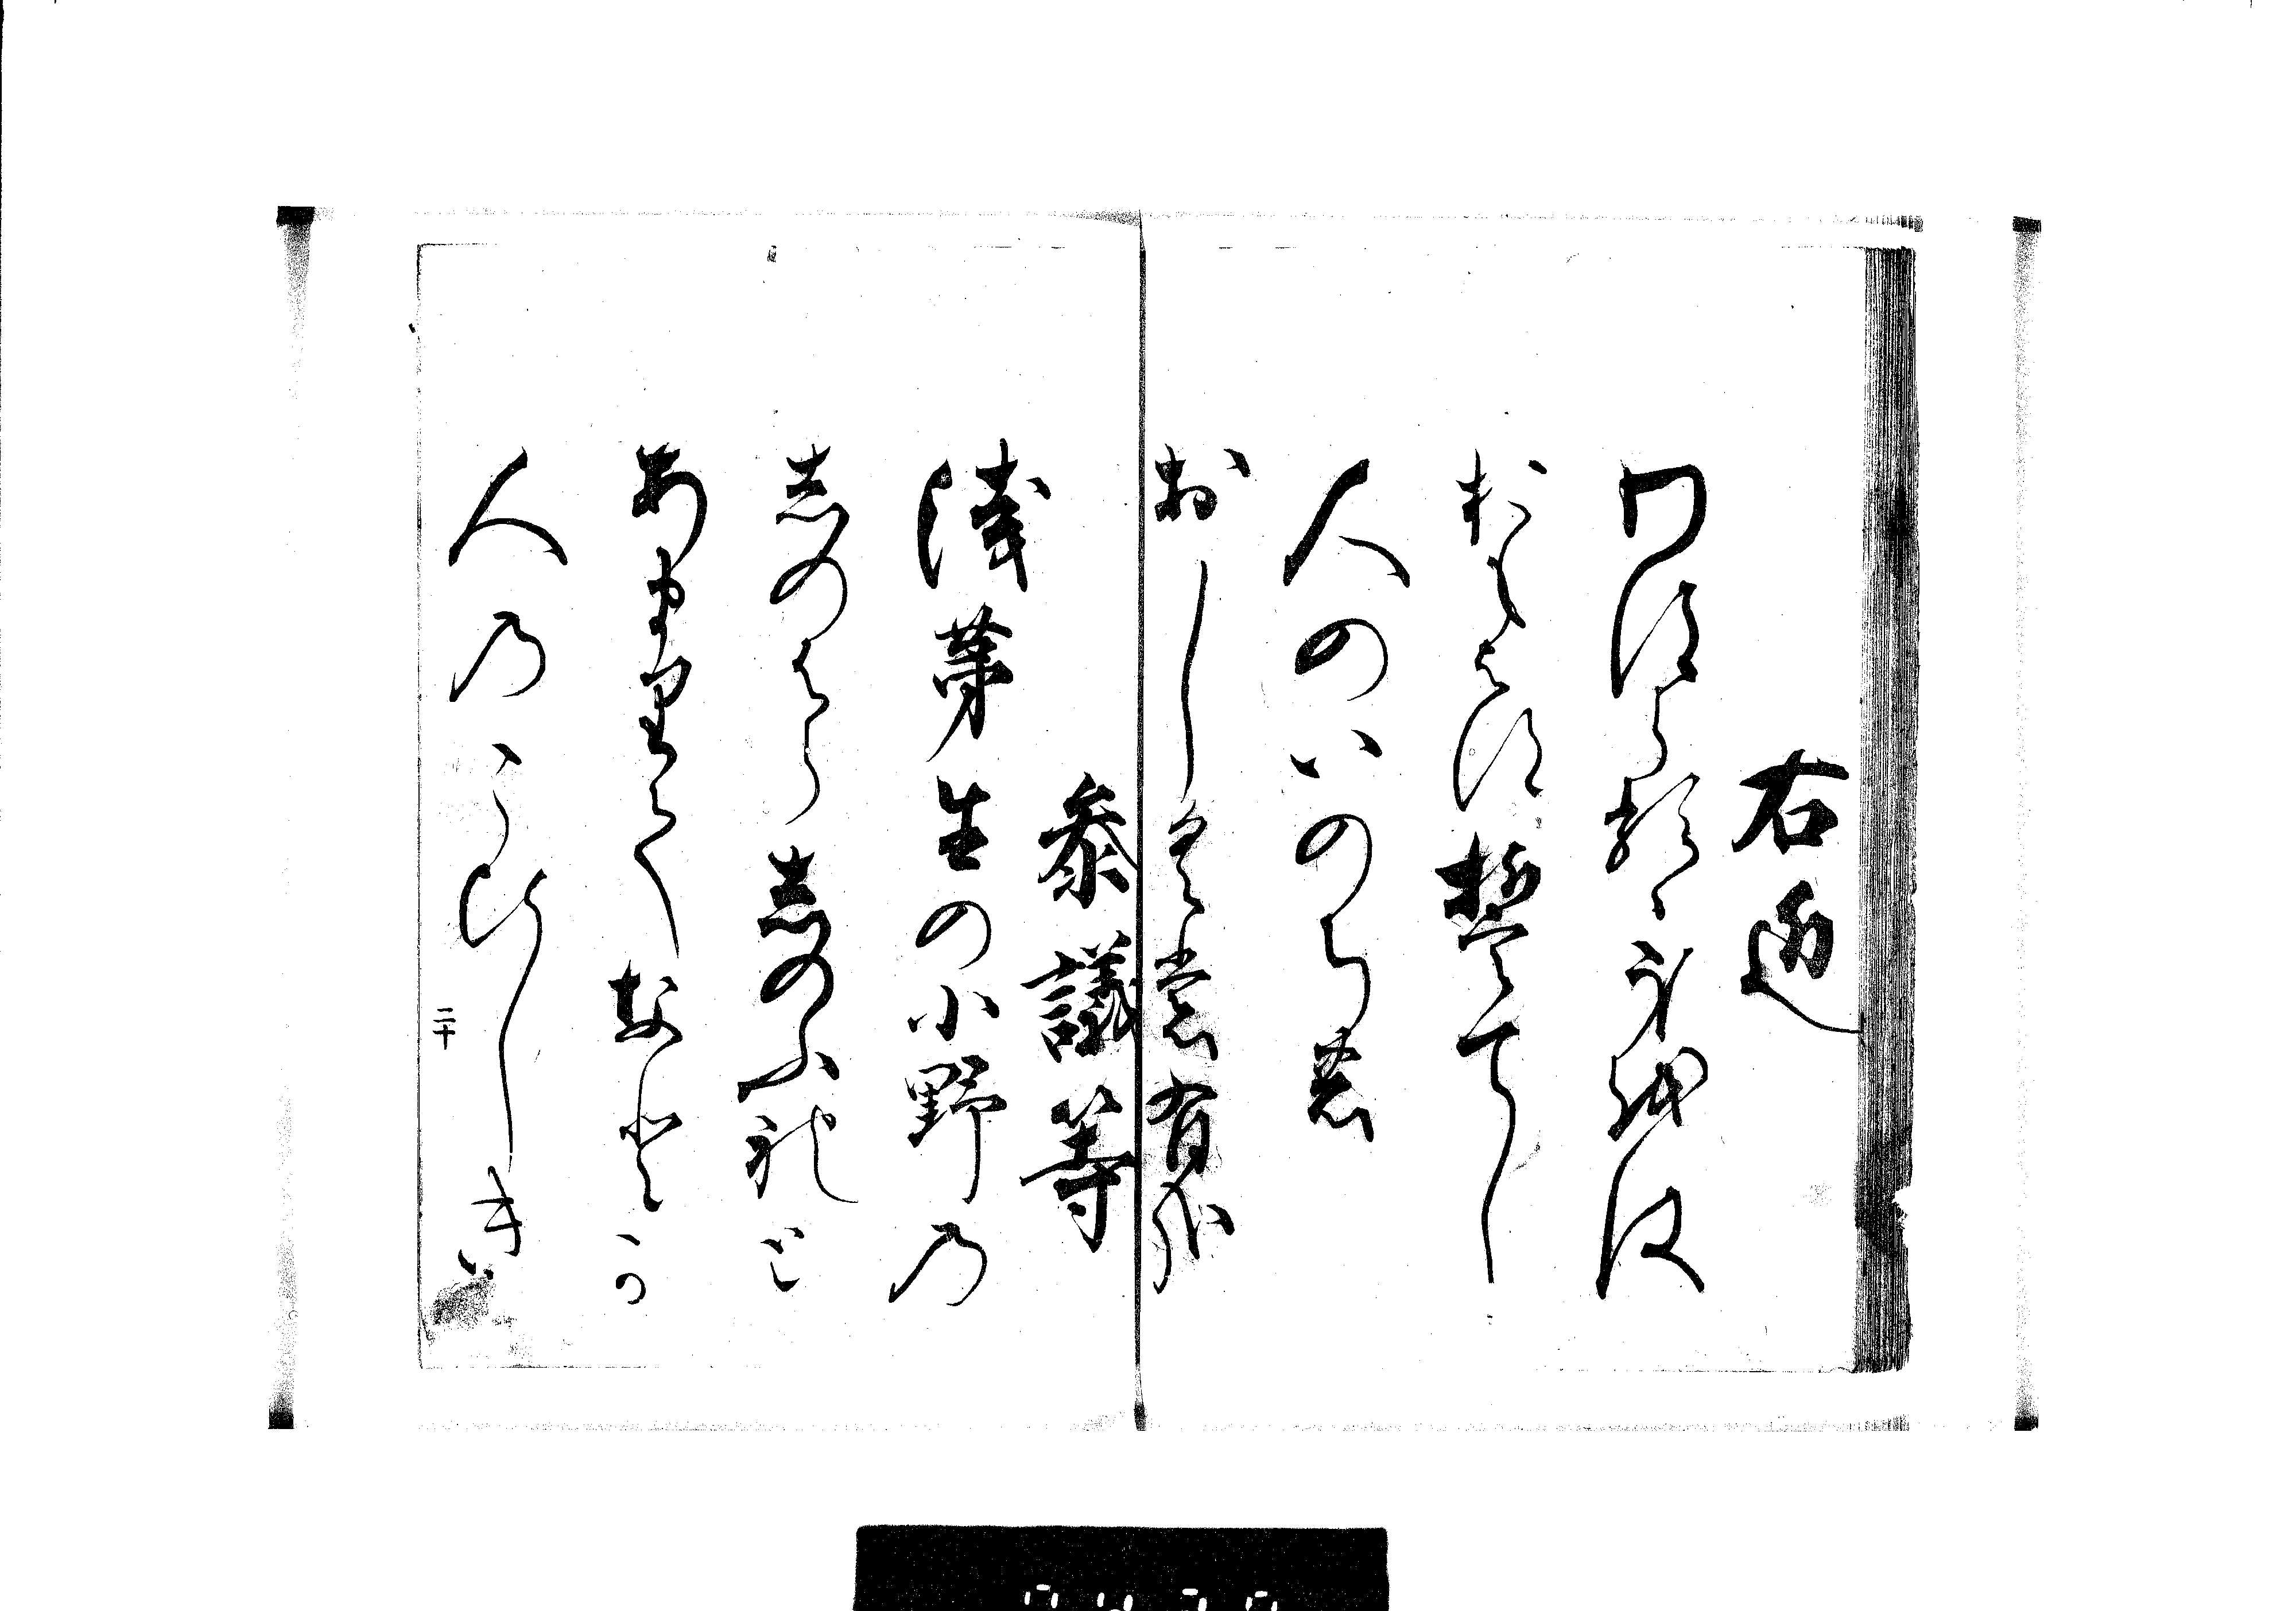 右近
わすらるゝ身をば
おもはず誓てし
人のいのちの
おしくも有哉
参議等
浅茅生の小野の
しのはらしのふれと
あまりてなとか
人のこひしき
二十